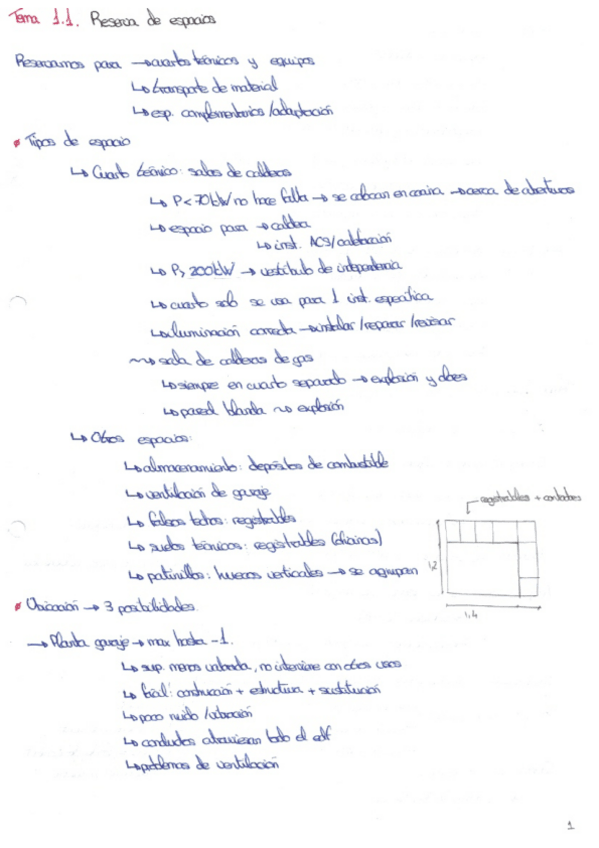 Tema 1.1. Reserva de espacios
Reservamos para → cuartos técnicos y equipos
↳ transporte de material
↳ esp. complementarios / adaptación
• Tipos de espacio
↳ Cuarto técnico: salas de calderas
↳ P < 70 kW no hace falta → se colocan en cocina → cerca de aberturas
↳ espacio para → caldera
↳ inst. ACS/calefacción
↳ P > 200 kW → vestíbulo de independencia
↳ cuarto solo se usa para 1 inst. específica
↳ iluminación correcta → instalar / reparar / revisar
~> sala de calderas de gas
↳ siempre en cuarto separado → explosión y olores
↳ pared blanda ~> explosión
↳ Otros espacios:
↳ almacenamiento: depósitos de combustible
↳ ventilación de garaje
registrables + contadores
↳ falsos techos: registrables
↳ suelos técnicos: registrables (oficinas)
↳ patinillos: huecos verticales → se agrupan
1,2
1,4
• Ubicación → 3 posibilidades.
→ Planta garaje → max hasta -1.
↳ sup. menos valorada, no interviene con otros usos
↳ fácil: construcción + estructura + sustitución
↳ poco ruido / vibración
↳ conductos atraviesan todo el edf
↳ problemas de ventilación
1